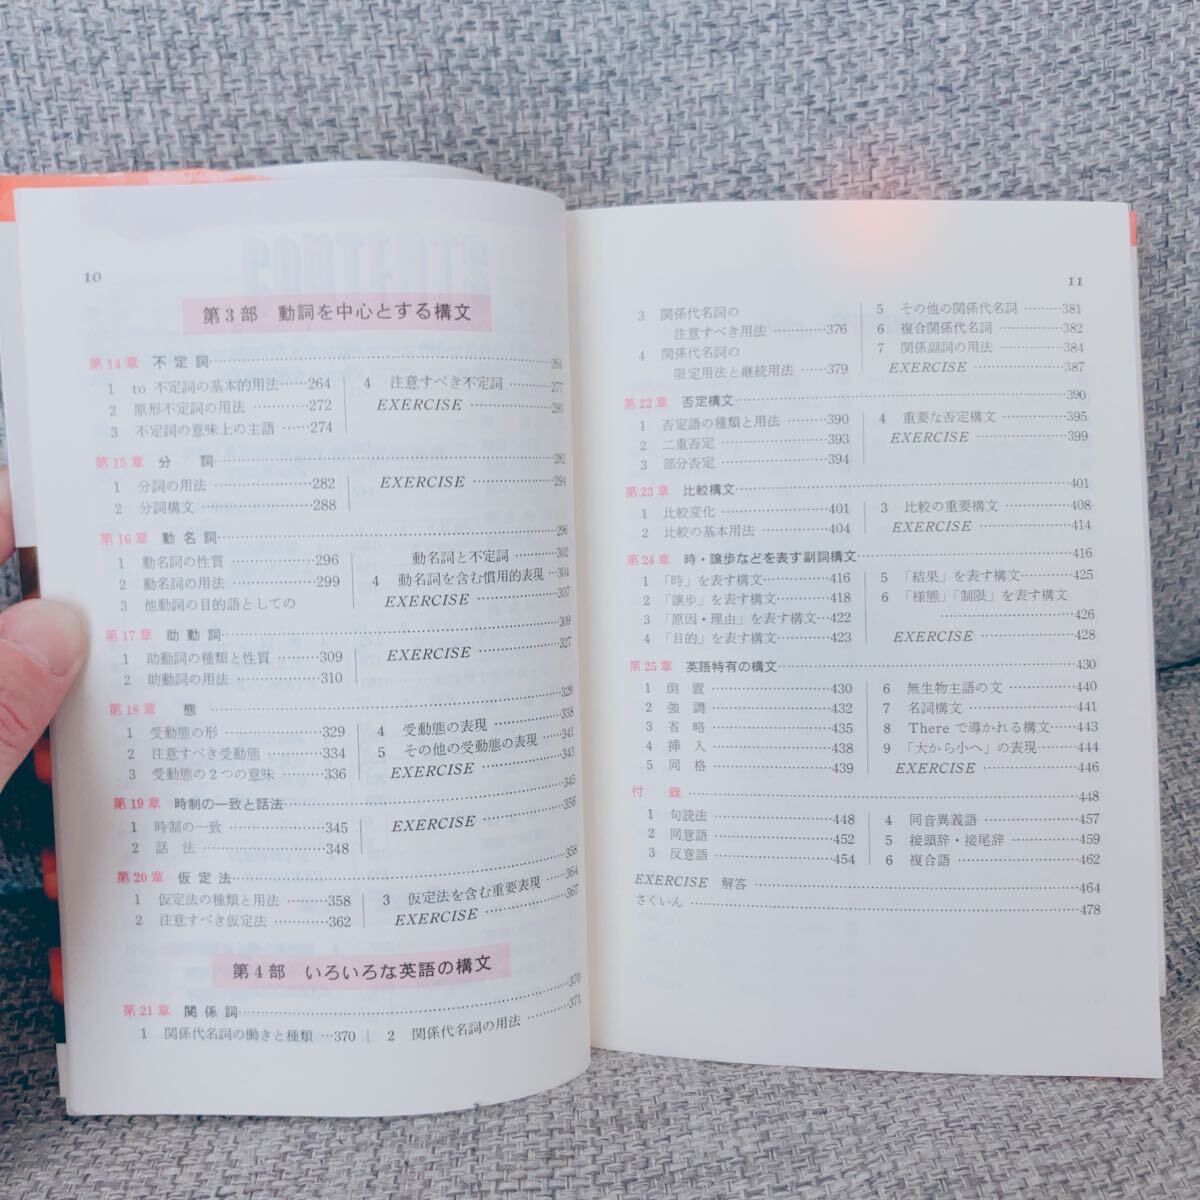 10
第3部 動詞を中心とする構文
第14章 不定詞……264
1 to 不定詞の基本的用法……264
2 原形不定詞の用法……272
3 不定詞の意味上の主語……274
4 注意すべき不定詞……277
EXERCISE……280
第15章 分詞……282
1 分詞の用法……282
2 分詞構文……288
EXERCISE……294
第16章 動名詞……296
1 動名詞の性質……296
2 動名詞の用法……299
3 他動詞の目的語としての
動名詞と不定詞……302
4 動名詞を含む慣用的表現…304
EXERCISE……307
第17章 助動詞……309
1 助動詞の種類と性質……309
2 助動詞の用法……310
EXERCISE……327
第18章 態……329
1 受動態の形……329
2 注意すべき受動態……334
3 受動態の2つの意味……336
4 受動態の表現……338
5 その他の受動態の表現……341
EXERCISE……343
第19章 時制の一致と話法……345
1 時制の一致……345
2 話法……348
EXERCISE……356
第20章 仮定法……358
1 仮定法の種類と用法……358
2 注意すべき仮定法……362
3 仮定法を含む重要表現……364
EXERCISE……367
第4部 いろいろな英語の構文
第21章 関係詞……370
1 関係代名詞の働きと種類…370
2 関係代名詞の用法……371
11
3 関係代名詞の
注意すべき用法……376
4 関係代名詞の
限定用法と継続用法……379
5 その他の関係代名詞……381
6 複合関係代名詞……382
7 関係副詞の用法……384
EXERCISE……387
第22章 否定構文……390
1 否定語の種類と用法……390
2 二重否定……393
3 部分否定……394
4 重要な否定構文……395
EXERCISE……399
第23章 比較構文……401
1 比較変化……401
2 比較の基本用法……404
3 比較の重要構文……408
EXERCISE……414
第24章 時・譲歩などを表す副詞構文……416
1 「時」を表す構文……416
2 「譲歩」を表す構文……418
3 「原因・理由」を表す構文…422
4 「目的」を表す構文……423
5 「結果」を表す構文……425
6 「様態」「制限」を表す構文
……426
EXERCISE……428
第25章 英語特有の構文……430
1 倒置……430
2 強調……432
3 省略……435
4 挿入……438
5 同格……439
6 無生物主語の文……440
7 名詞構文……441
8 There で導かれる構文……443
9 「大から小へ」の表現……444
EXERCISE……446
付録……448
1 句読法……448
2 同意語……452
3 反意語……454
4 同音異義語……457
5 接頭辞・接尾辞……459
6 複合語……462
EXERCISE 解答……464
さくいん……478